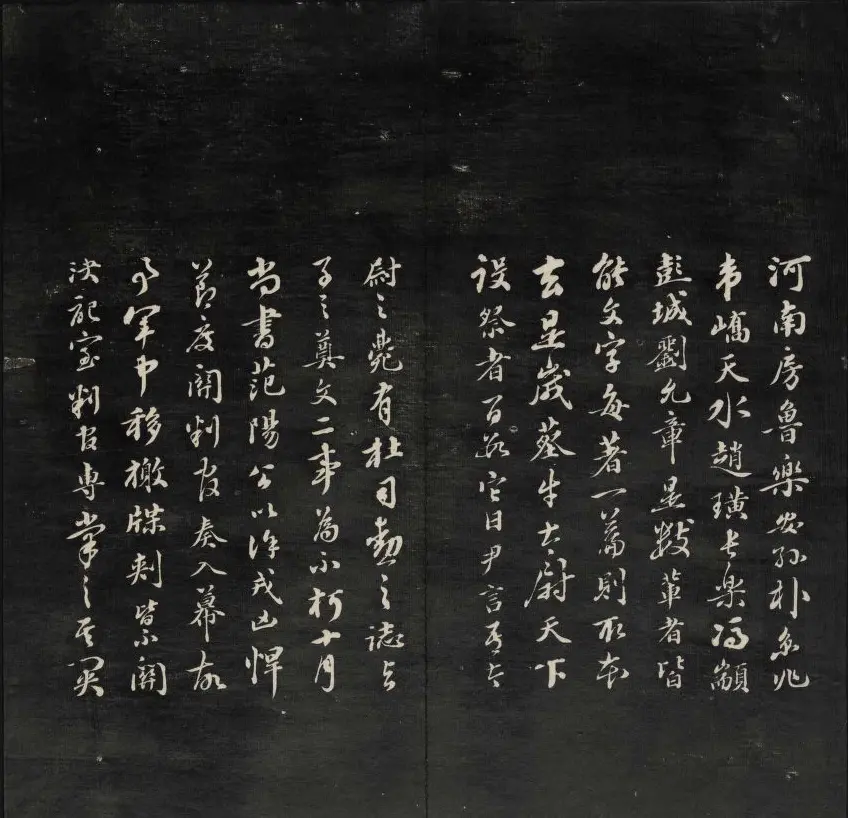 河南房魯樂安孫朴京兆
韋嶠天水趙璜長樂馮顓
彭城劉允章是數輩者皆
能文字每著一篇則取本
去是歲葬牛太尉天下
設祭者百數它日尹言吾太
尉之薨有杜司勳之誌與
子之奠文二事為不朽十月
尚書范陽公以徐戎凶悍
節度闕判官奏入幕故
事軍中移檄牒刺皆不關
決記室判官專掌之其關